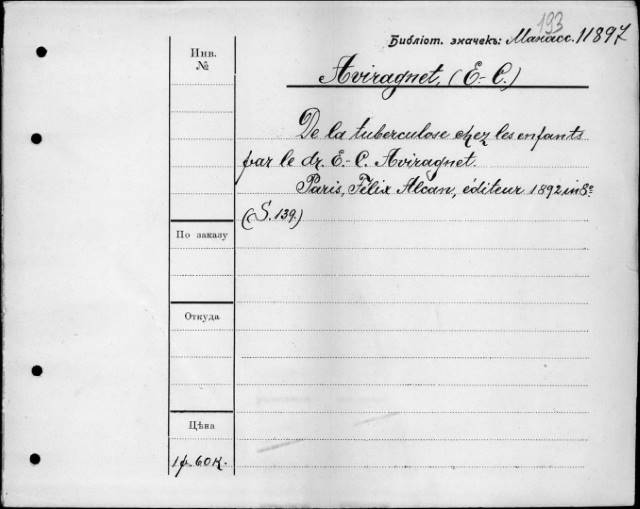 193
Библіот. значекъ: Манасс. 11897
Инв.
№
Aviragnet, (E.-C.)
De la tuberculose chez les enfants
par le dr. E.-C. Aviragnet.
Paris, Félix Alcan, éditeur 1892 in 8º
(S. 139.)
По заказу
Откуда
Цѣна
1 р. 60 к.